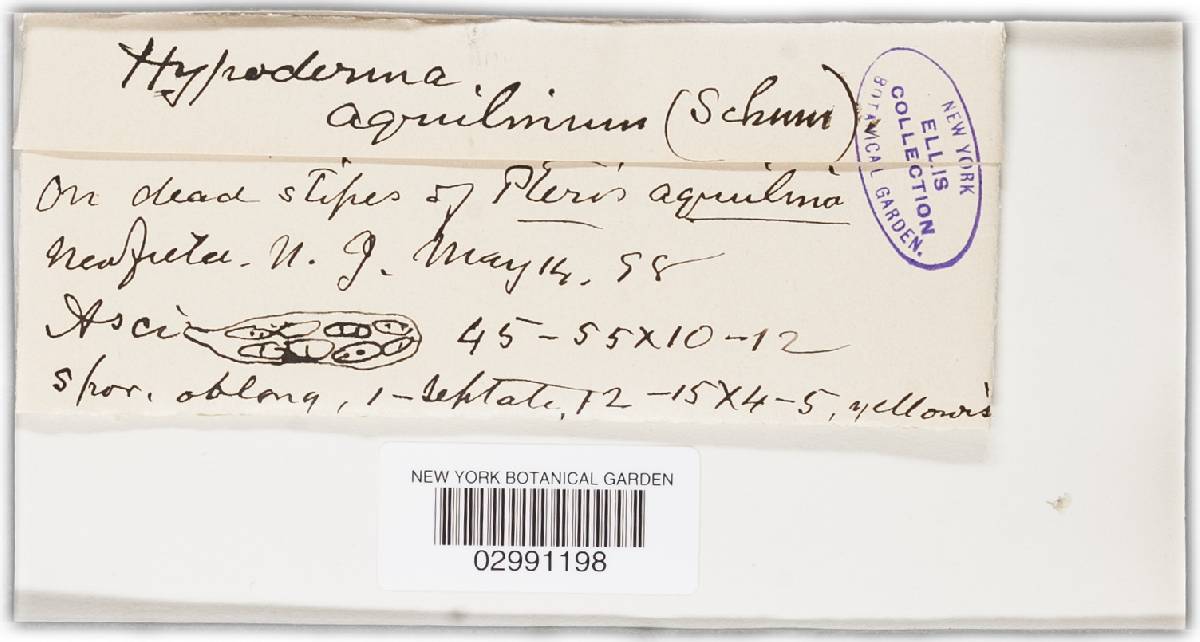 Hypoderma
aquilinum (Schum)
On dead stipes of Pteris aquilina
Newfield. N. J. May 14, 98
Asci 45-55X10-12
spor. oblong, 1-septate, 12-15X4-5, yellowis
NEW YORK
ELLIS
COLLECTION
BOTANICAL GARDEN.
NEW YORK BOTANICAL GARDEN
02991198